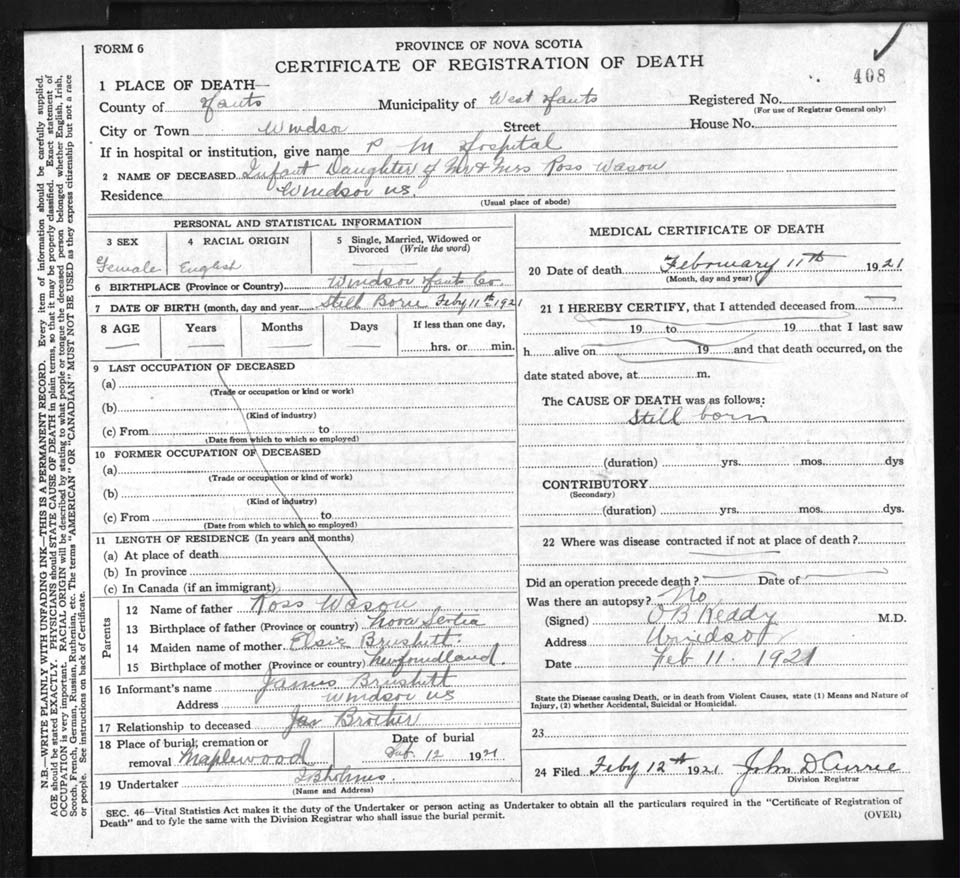 FORM 6
PROVINCE OF NOVA SCOTIA
CERTIFICATE OF REGISTRATION OF DEATH
408
1 PLACE OF DEATH—
County of Hants Municipality of West Hants Registered No.
(For use of Registrar General only)
City or Town Windsor Street House No.
If in hospital or institution, give name P M Hospital
2 NAME OF DECEASED Infant Daughter of Mr & Mrs Ross Wason
Residence Windsor NS.
(Usual place of abode)
PERSONAL AND STATISTICAL INFORMATION
3 SEX 4 RACIAL ORIGIN 5 Single, Married, Widowed or Divorced (Write the word)
Female English
6 BIRTHPLACE (Province or Country) Windsor Hants Co.
7 DATE OF BIRTH (month, day and year) Still Born Feby 11th 1921
8 AGE Years Months Days If less than one day,
hrs. or min.
9 LAST OCCUPATION OF DECEASED
(a)
(Trade or occupation or kind or work)
(b)
(Kind of industry)
(c) From to
(Date from which to which so employed)
10 FORMER OCCUPATION OF DECEASED
(a)
(Trade or occupation or kind of work)
(b)
(Kind of industry)
(c) From to
(Date from which to which so employed)
11 LENGTH OF RESIDENCE (In years and months)
(a) At place of death
(b) In province
(c) In Canada (if an immigrant)
Parents
12 Name of father Ross Wason
13 Birthplace of father (Province or country) Nova Scotia
14 Maiden name of mother Elsie Brushett
15 Birthplace of mother (Province or country) Newfoundland
16 Informant's name James Brushett
Address Windsor NS
17 Relationship to deceased Brother
18 Place of burial, cremation or removal Maplewood
Date of burial Feb 12 1921
19 Undertaker
(Name and Address)
MEDICAL CERTIFICATE OF DEATH
20 Date of death February 11th 1921
(Month, day and year)
21 I HEREBY CERTIFY, that I attended deceased from
19 to 19 that I last saw
h alive on 19 and that death occurred, on the
date stated above, at m.
The CAUSE OF DEATH was as follows:
Still born
(duration) yrs. mos. dys
CONTRIBUTORY
(Secondary)
(duration) yrs. mos. dys.
22 Where was disease contracted if not at place of death?
Did an operation precede death? Date of
Was there an autopsy? No
(Signed) O B Keddy M.D.
Address Windsor
Date Feb 11. 1921
State the Disease causing Death, or in death from Violent Causes, state (1) Means and Nature of
Injury, (2) whether Accidental, Suicidal or Homicidal.
23
24 Filed Feby 12th 1921 John D Currie
Division Registrar
SEC. 46—Vital Statistics Act makes it the duty of the Undertaker or person acting as Undertaker to obtain all the particulars required in the "Certificate of Registration of
Death" and to fyle the same with the Division Registrar who shall issue the burial permit.
(OVER)
N.B.—WRITE PLAINLY WITH UNFADING INK—THIS IS A PERMANENT RECORD. Every item of information should be carefully supplied.
AGE should be stated EXACTLY. PHYSICIANS should STATE CAUSE OF DEATH in plain terms, so that it may be properly classified. Exact statement of
OCCUPATION is very important. RACIAL ORIGIN will be described by stating to what people or tongue the deceased person belonged whether English, Irish,
Scotch, French, German, Russian, Ruthenian, etc. The terms "AMERICAN" OR "CANADIAN" MUST NOT BE USED as they express citizenship but not a race
or people. See instructions on back of Certificate.